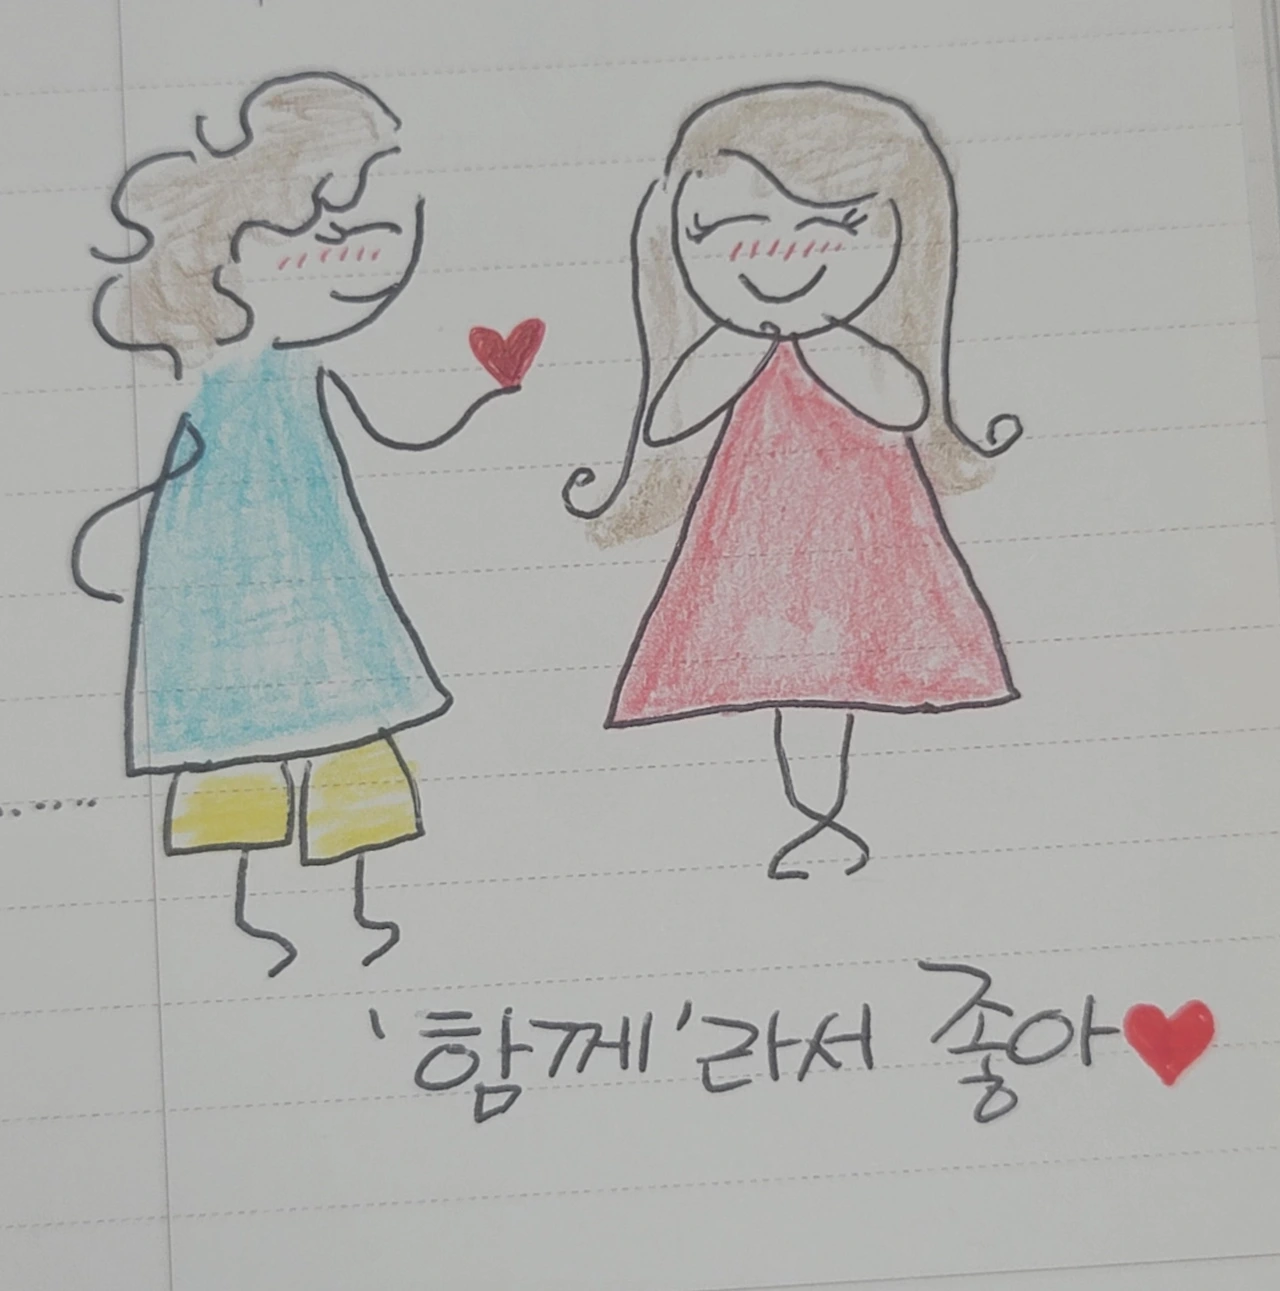 '함께'라서 좋아♥